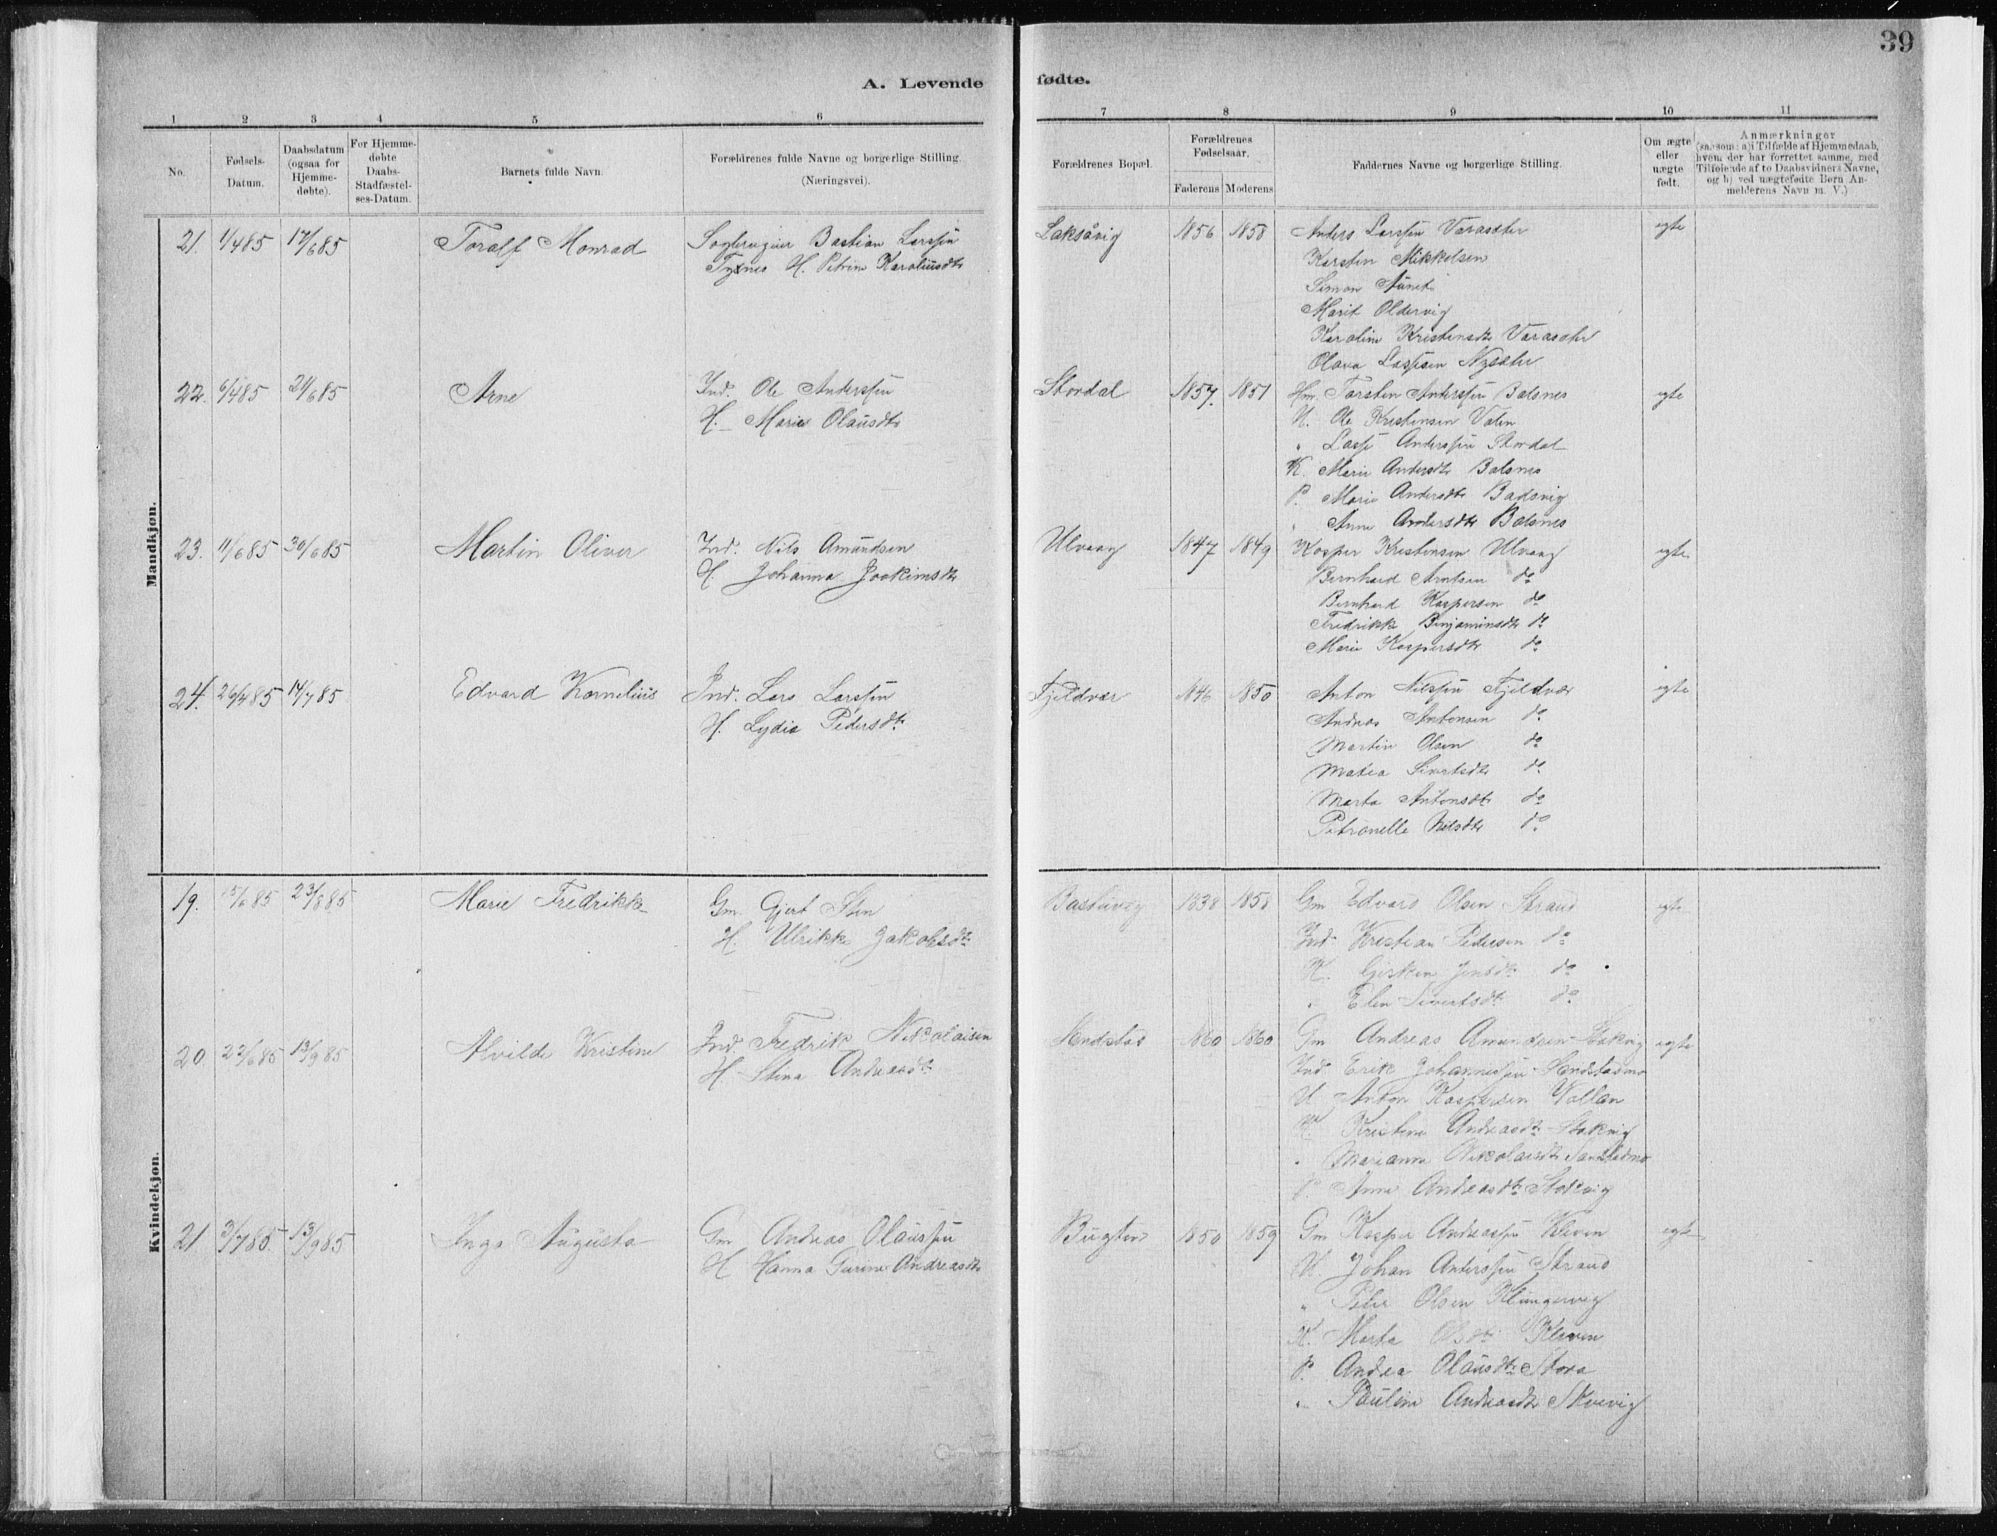 39
A. Levende fødte.
1 2 3 4 5 6 7 8 9 10 11
No.
Fødsels-Datum.
Daabsdatum (ogsaa for Hjemmedøbte).
For Hjemmedøbte Daabs-Stadfæstelses-Datum.
Barnets fulde Navn.
Forældrenes fulde Navne og borgerlige Stilling. (Næringsvei).
Forældrenes Bopæl.
Forældrenes Fødselsaar.
Faderens Moderens
Faddernes Navne og borgerlige Stilling.
Om ægte eller uægte født.
Anmærkninger (saasom: a) i Tilfælde af Hjemmedaab, hvem der har forrettet samme, med Tilføiende af to Daabsvidners Navne, og b) ved uægtefødte Børn Anmelderens Navn m. V.)
Mandkjøn.
21. 1/4 85 17/6 85 Toralf Monrad Bastian Larssen Laksåvig 1856 1858 Anders Larssen Varasæter egte
H. Petrine Karoliusdtr Karsten Mikkelsen
Simon
Marit Oldervig
Karoline Kristensdtr Varasæter
Olava Larssen Nysæter
22. 6/4 85 21/6 85 Arne Ind. Ole Anderssen Stordal 1857. 1851 Hm. Torsten Anderssen Balsnes egte
H. Marie Olausdtr U. Ole Kristensen Valen
" Lasse Anderssen Stordal
K. Marie Andersdtr Balsnes
P. Marie Andersdtr Badsvig
" Anne Andersdtr Balsnes
23. 11/6 85 30/6 85 Martin Oliver Ind. Nils Amundsen Ulvaag 1847 1849 Kasper Kristensen Ulvaag egte
H. Johanna Joakimsdtr Bernhard Arntsen do
Bernhard Kaspersen do
Fredrikke Benjaminsdtr do
Marie Kaspersdtr do
24. 26/4 85 14/7 85 Edvard Kornelius Ind. Lars Larssen Fjeldvær 1846 1850 Anton Nilssen Fjeldvær egte
H. Lydia Pedersdtr Andreas Antonsen do
Martin Olsen do
Matea Sivertsdtr do
Marta Antonsdtr do
Petronelle Nilsdtr do
Kvindekjøn.
19. 15/6 85 23/8 85 Marie Fredrikke Gm. Gjert Sten Bastuvig 1838 1858 Gm Edvard Olsen Strand egte
H. Ulrikke Jakobsdtr Ind. Kristian Pedersen do
K. Gjsken Jensdtr do
" Elen Sivertsdtr do
20. 23/6 85 13/9 85 Alvilde Kristine Ind. Fredrik Nikolaisen 1860 1860 Gm Andreas Amundsen Stokvig egte
H. Stina Andreasdtr Ind Erik Johannessen
U Anton Kaspersen Vollan
K Kristine Andreasdtr Stokvig
" Marianne Nikolaisdtr
P Anne Andreasdtr Stokvig
21 3/7 85. 13/9 85 Inga Augusta Gm Andreas Olaussen Bugten 1850 1859 Gm Kasper Andreassen Kleven egte
H Hanna Gurine Andreasdtr U. Johan Anderssen Strand
" Peter Olsen Klungervig
K. Marta Olsdtr Kleven
P. Andrea Olausdtr Stora
" Pauline Andreasdtr Skvevig